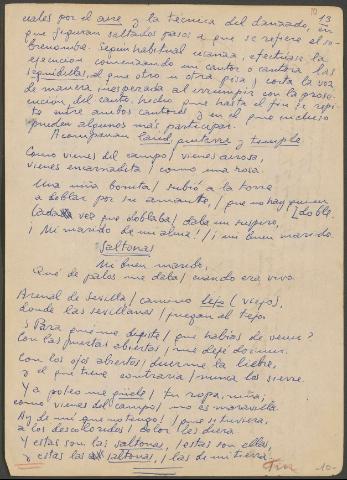 10 13
uales por el aire y la técnica del danzado, en
que figuran saltados pasos a que se refiere el so-
brenombre. Según habitual usanza, efectúase la
ejecución comenzando un cantor o cantora las
seguidillas, al que otro u otra pisa y corta la voz
de manera inesperada al irrumpir con la prose-
cución del canto, hecho que hasta el fin se repi-
te entre ambos cantores y en el que incluso
pueden algunos más participar.
Acompañan laúd, guitarra y temple
Como vienes del campo / vienes airosa,
vienes encarnadita / como una rosa.
Una niña bonita / subió a la torre
a doblar por su amante, / que no hay quien
[doble.
Cada vez que doblaba / daba un suspiro,
¡ Mi marido de mi alma! / ¡ mi buen marido.
Saltonas
Mi buen marido,
Qué de palos me daba / cuando era vivo
Arenal de Sevilla / camino lejo (viejo),
donde las sevillanas / juegan el tejo.
¿ Para qué me dejiste / que habías de venir?
Con las puertas abiertas / me dejé dormir.
Con los ojos abiertos / duerme la liebre,
y el que tiene contraria / nunca los cierre.
Y a poleo me güele / tu ropa, niña;
como vienes del campo / no es maravilla.
Ay de mí que no tengo! / ¡ quién tuviera,
a los descoloridos / color les diera.
Y estas son las saltonas, / estas son ellas,
y estas las saltonas, / las de mi tierra.
Fin 10-